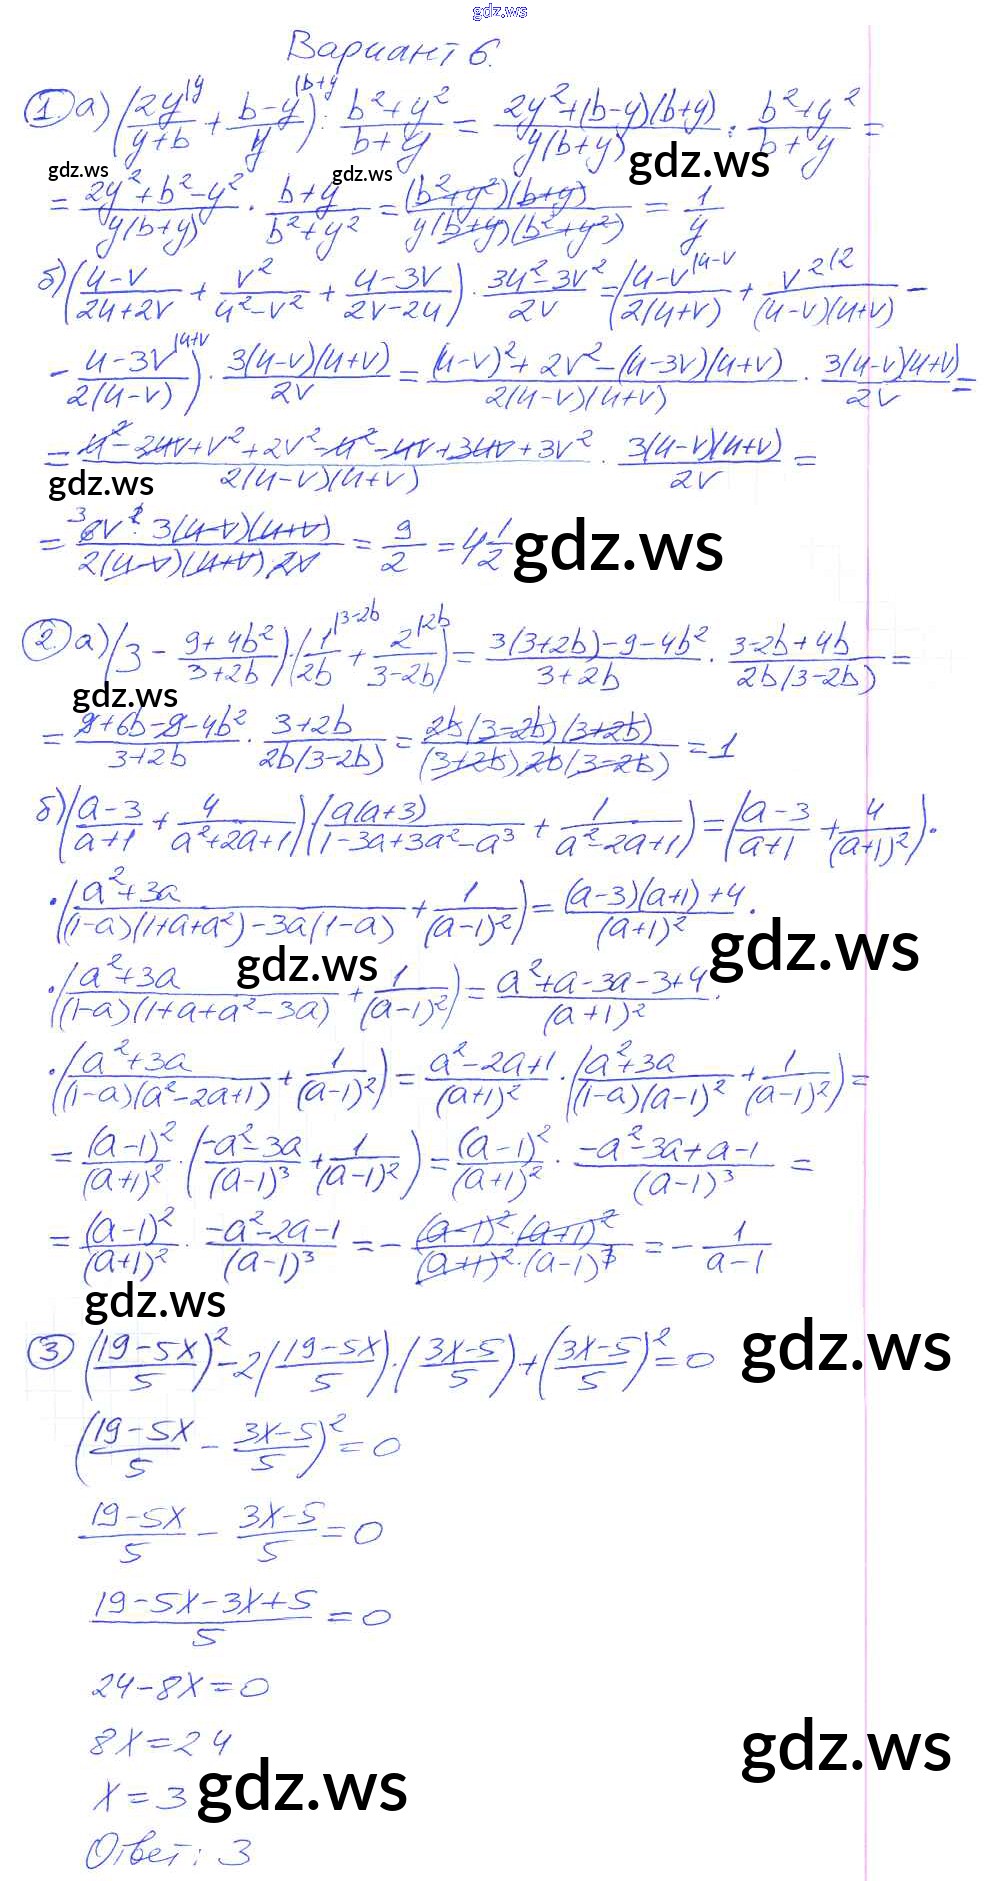 gdz.ws
Вариант 6.
1) а) (2y/(y+b) |y + (b-y)/y |b+y) : (b²+y²)/(b+y) = (2y²+(b-y)(b+y))/(y(b+y)) : (b²+y²)/(b+y) =
gdz.ws gdz.ws gdz.ws
= (2y²+b²-y²)/(y(b+y)) · (b+y)/(b²+y²) = ((b²+y²)(b+y))/(y(b+y)(b²+y²)) = 1/y
б) ((u-v)/(2u+2v) + v²/(u²-v²) + (u-3v)/(2v-2u)) · (3u²-3v²)/2v = ((u-v)/(2(u+v)) |u-v + v²/((u-v)(u+v)) |2 -
- (u-3v)/(2(u-v)) |u+v) · 3(u-v)(u+v)/2v = ((u-v)²+2v²-(u-3v)(u+v))/(2(u-v)(u+v)) · 3(u-v)(u+v)/2v =
= (u²-2uv+v²+2v²-u²-uv+3uv+3v²)/(2(u-v)(u+v)) · 3(u-v)(u+v)/2v =
gdz.ws
= (3 6v² · 3(u-v)(u+v))/(2(u-v)(u+v) 2v) = 9/2 = 4 1/2
gdz.ws
2. а) (3 - (9+4b²)/(3+2b)) · (1/2b |3-2b + 2/(3-2b) |2b) = (3(3+2b)-9-4b²)/(3+2b) · (3-2b+4b)/(2b(3-2b)) =
gdz.ws
= (9+6b-9-4b²)/(3+2b) · (3+2b)/(2b(3-2b)) = (2b(3-2b)(3+2b))/((3+2b)2b(3-2b)) = 1
б) ((a-3)/(a+1) + 4/(a²+2a+1)) (a(a+3)/(1-3a+3a²-a³) + 1/(a²-2a+1)) = ((a-3)/(a+1) + 4/(a+1)²) ·
· ((a²+3a)/((1-a)(1+a+a²)-3a(1-a)) + 1/(a-1)²) = ((a-3)(a+1)+4)/(a+1)² ·
gdz.ws gdz.ws
· ((a²+3a)/((1-a)(1+a+a²-3a)) + 1/(a-1)²) = (a²+a-3a-3+4)/(a+1)² ·
· ((a²+3a)/((1-a)(a²-2a+1)) + 1/(a-1)²) = (a²-2a+1)/(a+1)² · ((a²+3a)/((1-a)(a-1)²) + 1/(a-1)²) =
= (a-1)²/(a+1)² · ((-a²-3a)/(a-1)³ + 1/(a-1)²) = (a-1)²/(a+1)² · (-a²-3a+a-1)/(a-1)³ =
= (a-1)²/(a+1)² · (-a²-2a-1)/(a-1)³ = - ((a-1)²·(a+1)²)/((a+1)²·(a-1)³) = - 1/(a-1)
gdz.ws
3) ((19-5x)/5)² - 2((19-5x)/5) · ((3x-5)/5) + ((3x-5)/5)² = 0
gdz.ws
((19-5x)/5 - (3x-5)/5)² = 0
(19-5x)/5 - (3x-5)/5 = 0
(19-5x-3x+5)/5 = 0
24-8x=0
8x=24
gdz.ws
x=3
gdz.ws
Ответ: 3